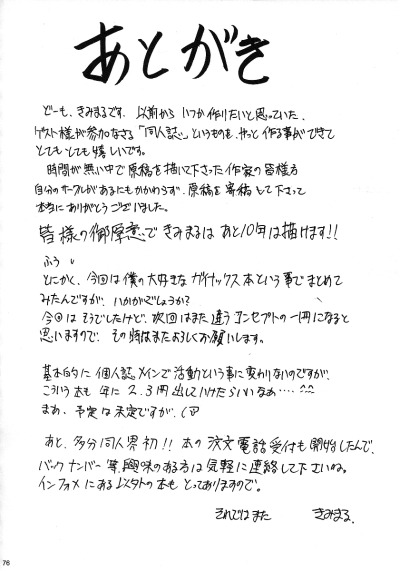 あとがき
どーも、きみまるです。以前から いつか作りたいと思っていた、
ゲスト様が参加なさる「同人誌」というものを、やっと作る事ができて
とてもとても嬉しいです。
時間が無い中で原稿を描いて下さった作家の皆様方
自分のサークルがあるにもかかわらず、原稿を寄稿して下さって
本当にありがとうございました。
皆様の御厚意できみまるは あと10年は描けます!!
ふう
とにかく、今回は僕の大好きなガイナックス本という事でまとめて
みたんですが、いかがでしょうか?
今回はそうでしたけど、次回はまた違うコンセプトの一冊になると
思いますので、その時はまたよろしくお願いします。
基本的に個人誌メインで活動という事に変わりないのですが、
こういう本も 年に 2、3冊出していけたらいいなぁ‥‥^^
まぁ、予定は未定ですが、
あと、多分同人界初!! 本の注文電話受付も開始したんで、
バックナンバー等、興味のある方は気軽に連絡して下さいね。
インフォメにある以外の本も とってありますので。
それではまた きみまる
76